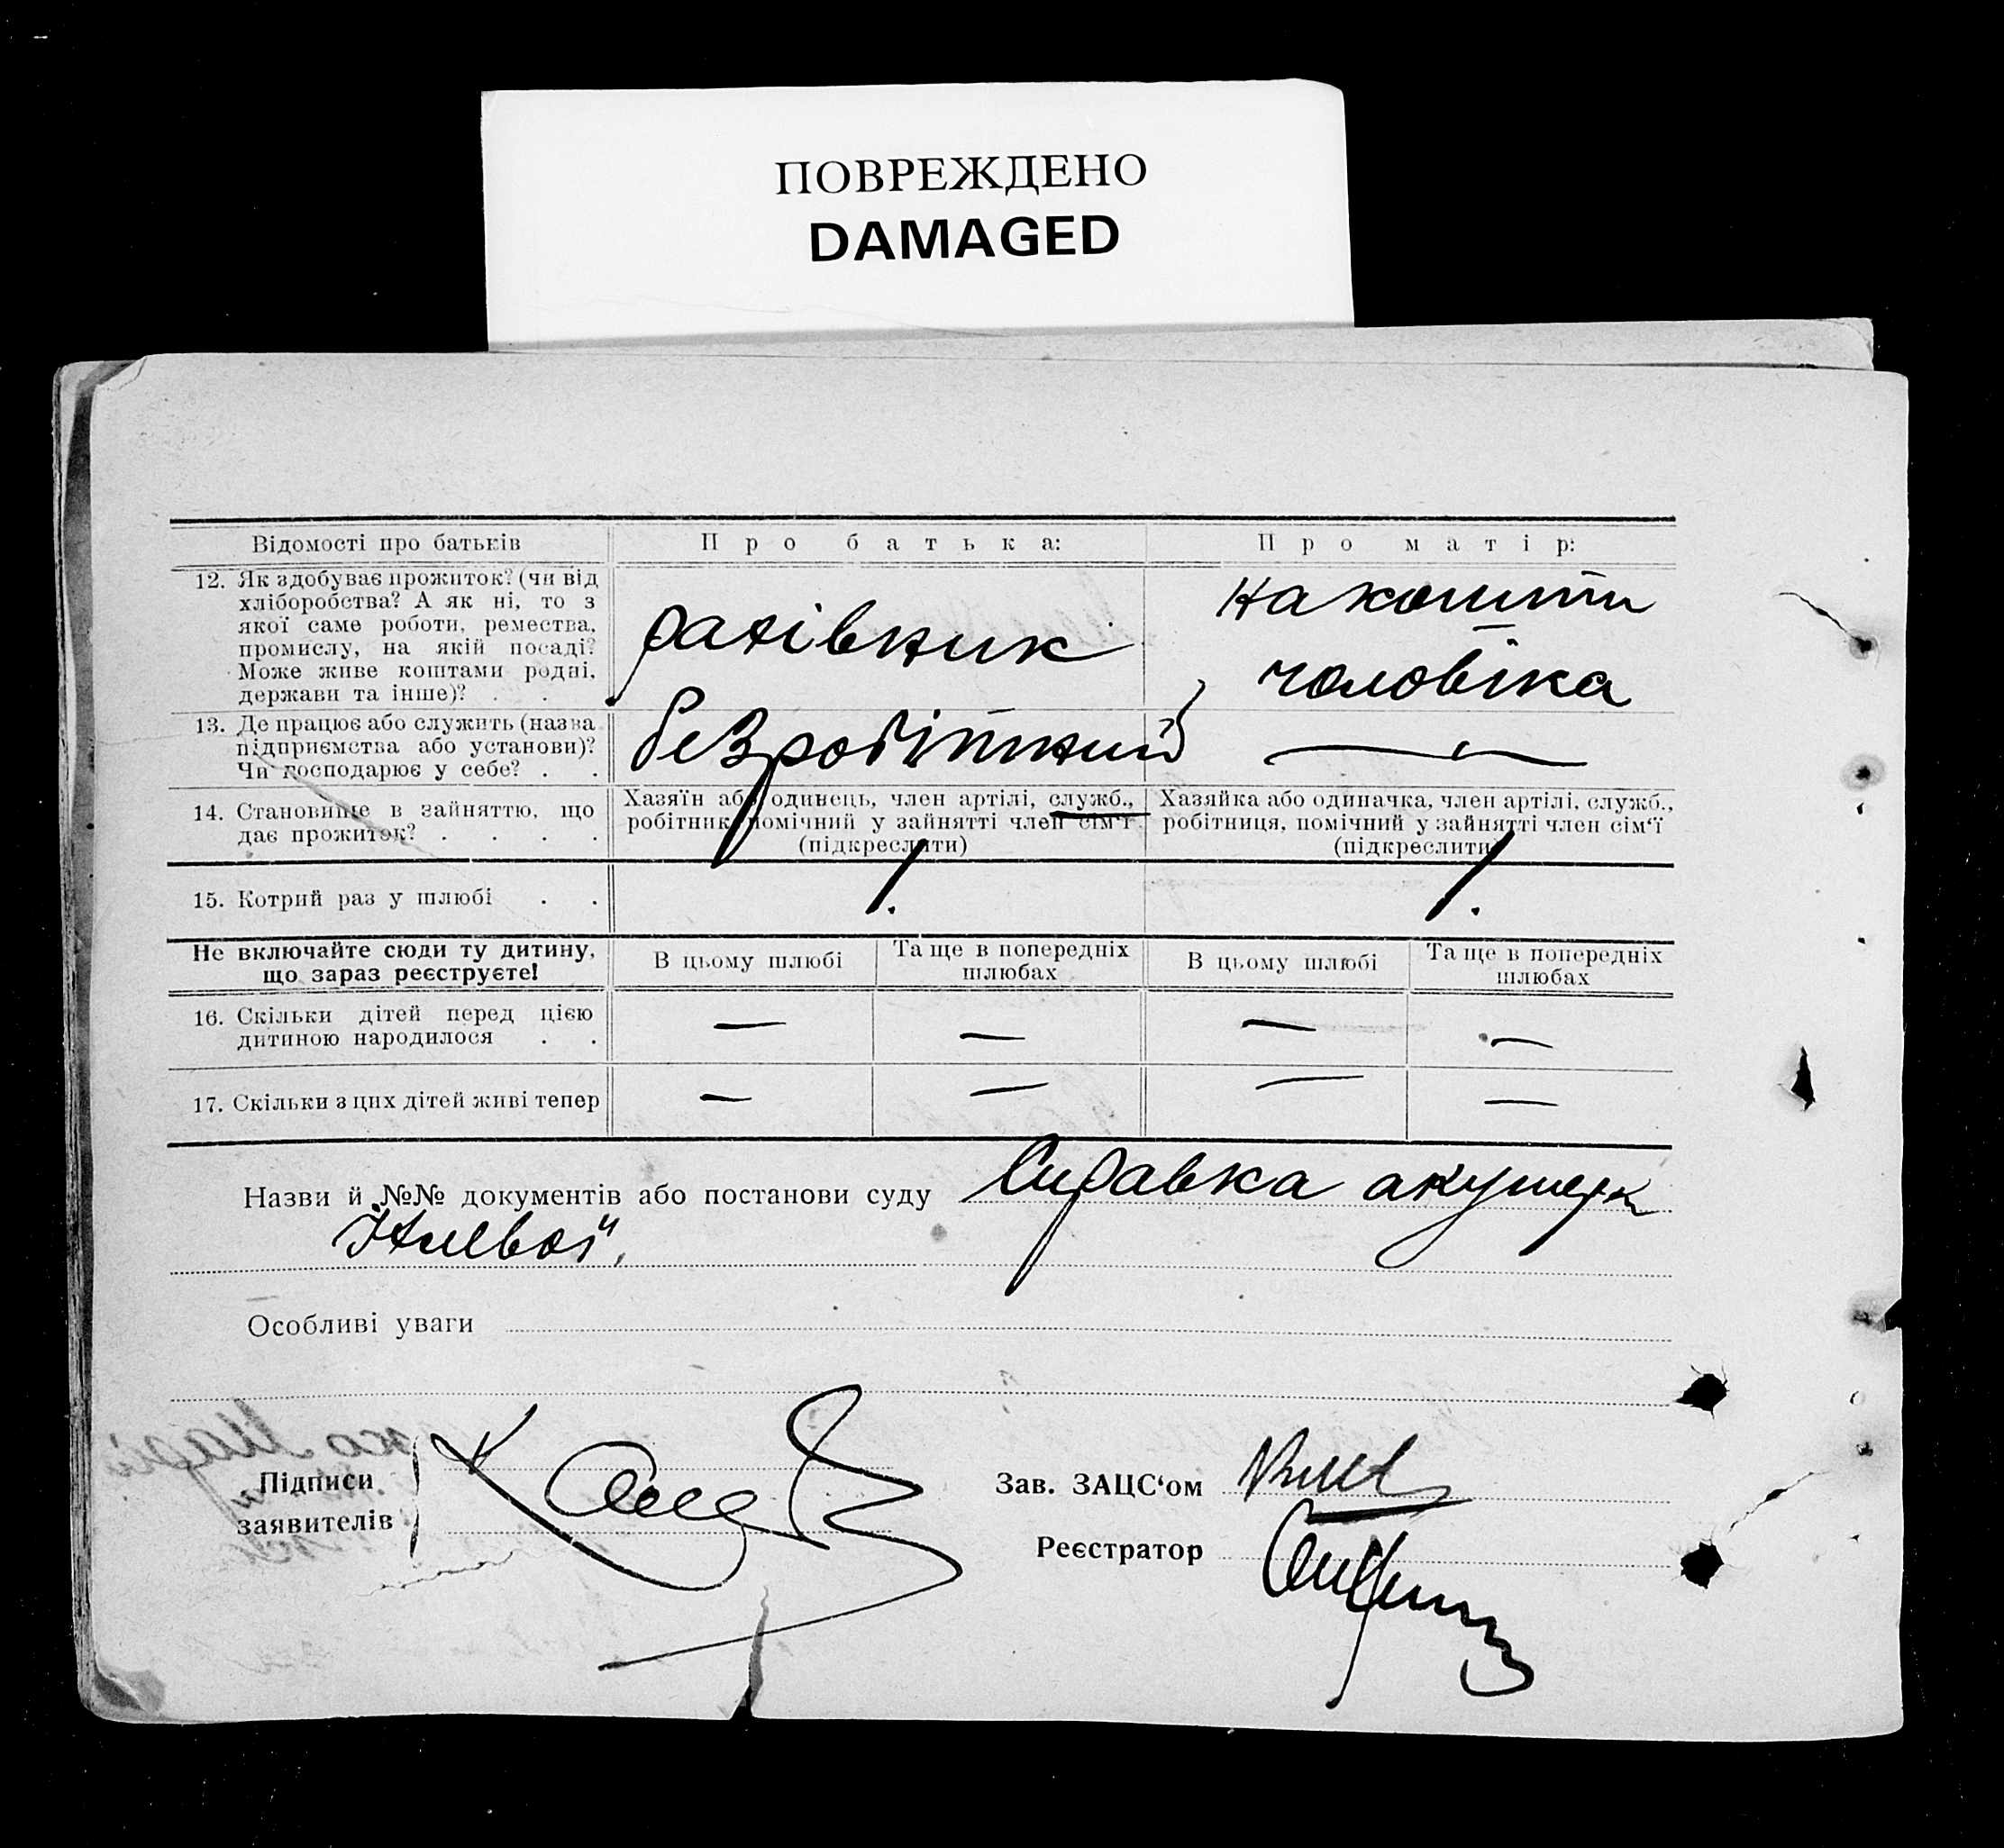 ПОВРЕЖДЕНО
DAMAGED
Відомості про батьків
Про батька:
Про матір:
12. Як здобуває прожиток? (чи від
хліборобства? А як ні, то з
якої саме роботи, ремества,
промислу, на якій посаді?
Може живе коштами родні,
держави та інше)? . .
рахівник
на кошти
чоловіка
13. Де працює або служить (назва
підприємства або установи)?
Чи господарює у себе? . .
безробітний
—
14. Становище в зайняттю, що
дає прожиток? . . . .
Хазяїн або одинець, член артілі, служб.,
робітник помічний у зайнятті член сім'ї
(підкреслити)
Хазяйка або одиначка, член артілі, служб.,
робітниця, помічний у зайнятті член сім'ї
(підкреслити)
15. Котрий раз у шлюбі . .
1.
1.
Не включайте сюди ту дитину,
що зараз реєструєте!
В цьому шлюбі
Та ще в попередніх
шлюбах
В цьому шлюбі
Та ще в попередніх
шлюбах
16. Скільки дітей перед цією
дитиною народилося . .
— — — —
17. Скільки з цих дітей живі тепер
— — — —
Назви й №№ документів або постанови суду Справка акушерк
Особливі уваги
Підписи
заявителів
Зав. ЗАЦС'ом
Реєстратор